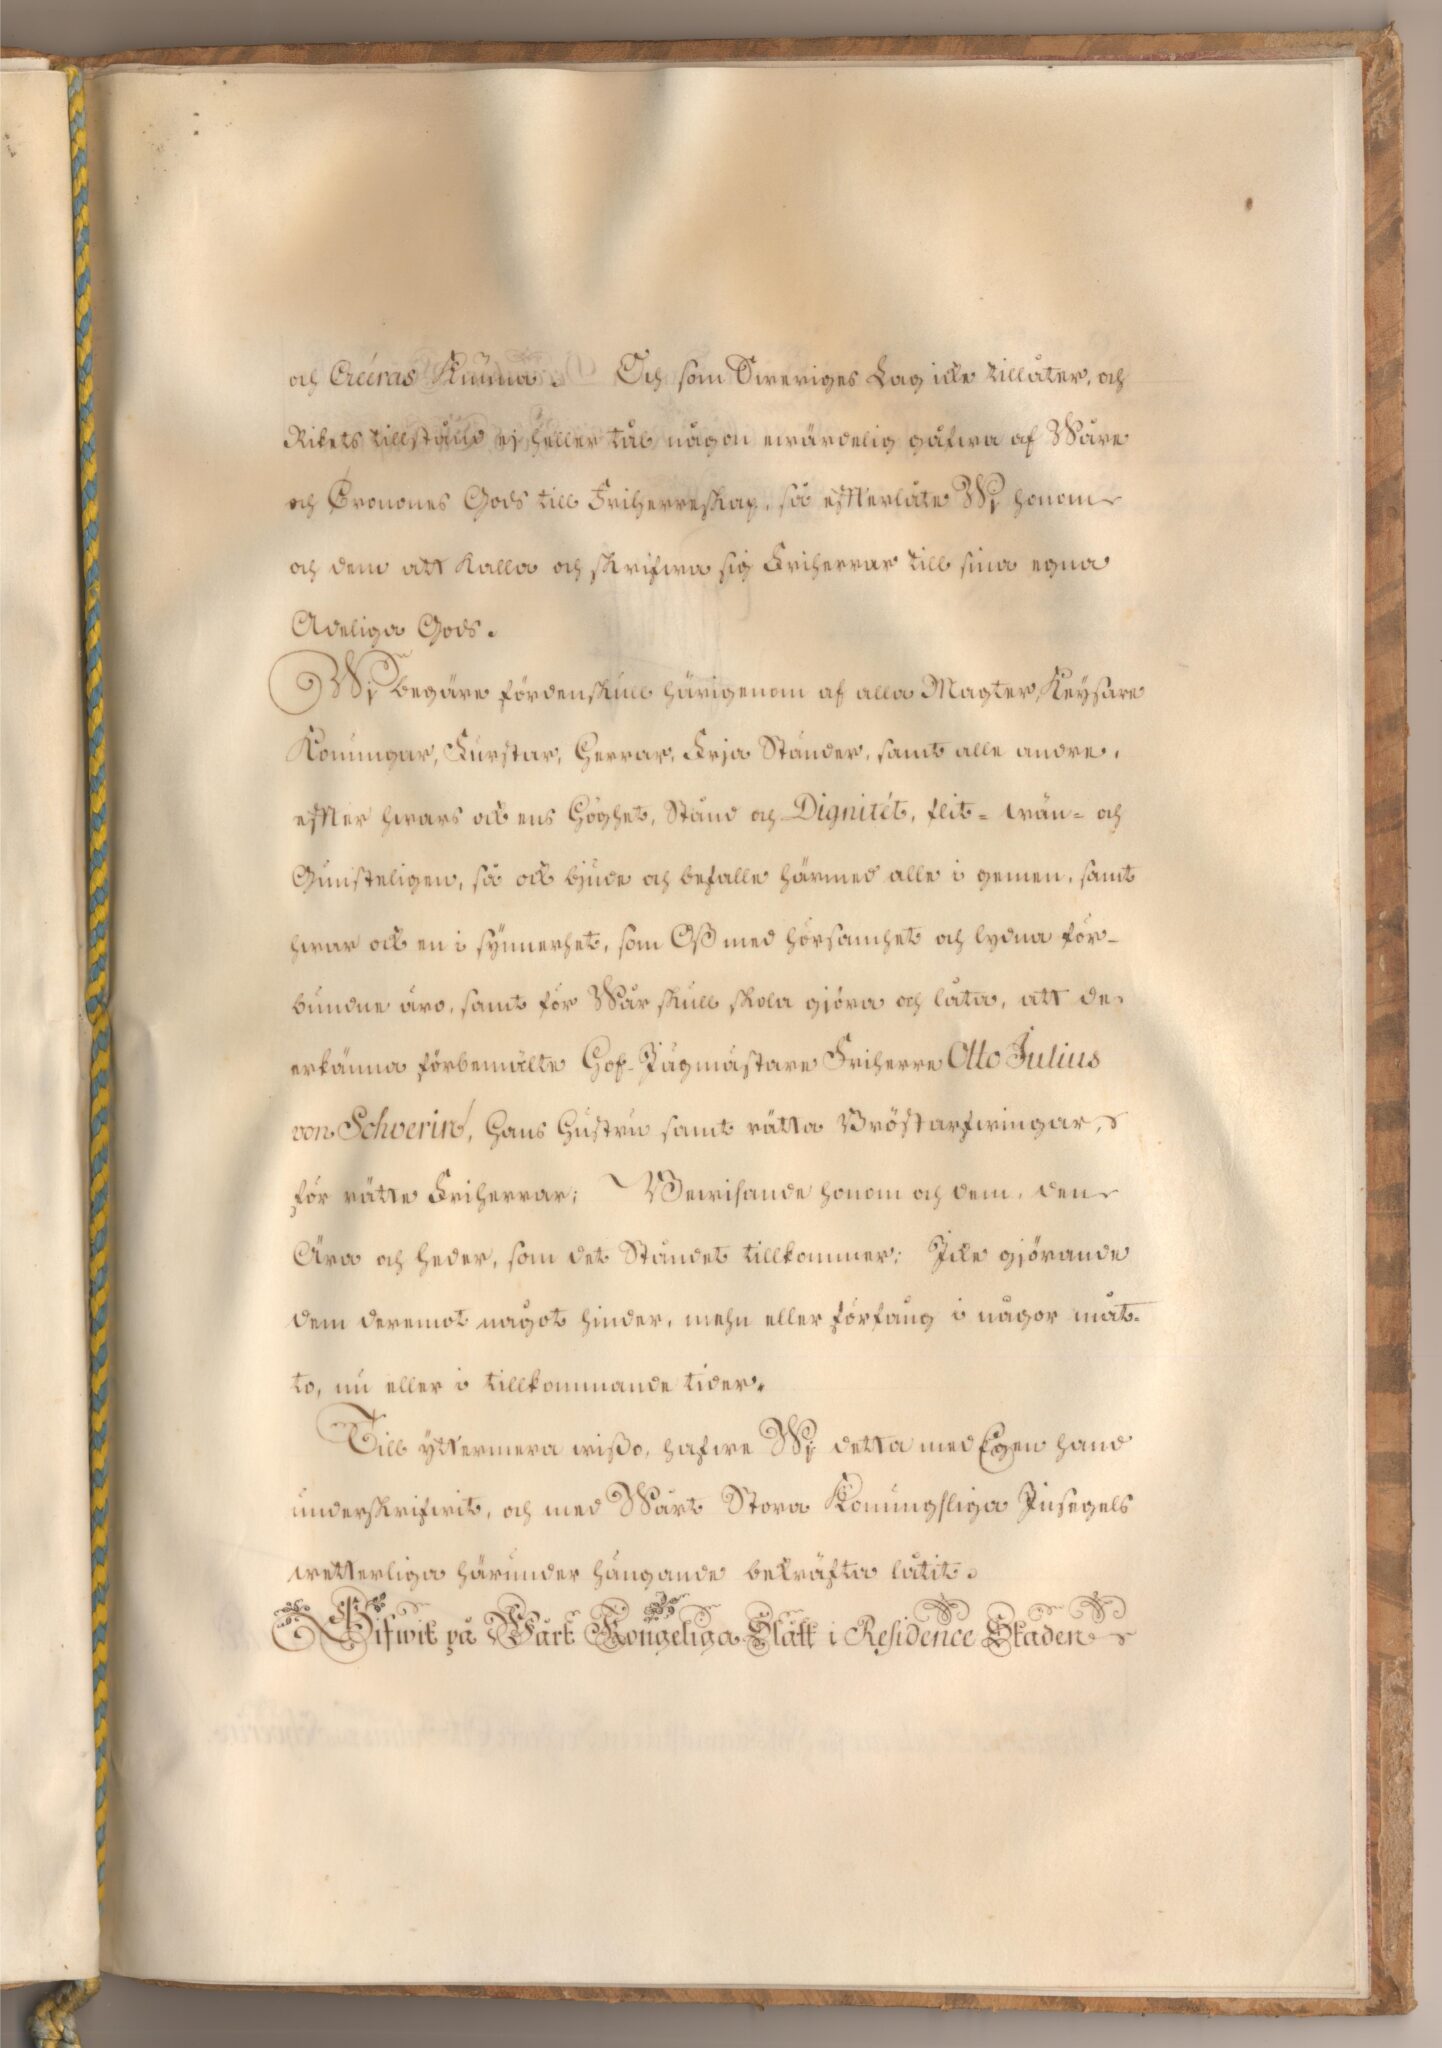 och Creeras Kunna. Och som Sweriges Lag icke tillåter, och
Rikets tillstånd ej heller tål någon ewärdelig gåfwa af Wåre
och Cronones Gods till Friherreskap, så efterlåte Wj honom
och dem att kalla och skrifwa sig Friherrar till sina egna
Adeliga Gods.
Wj begäre fördenskull härigenom af alla Magter, Keysare
Konungar, Furstar, Herrar, Frja Ständer, samt alle andre,
effter hwars ock ens Höghet, Stånd och Dignitét, flit- wän- och
Gunsteligen, så ock bjude och befalle härmed alle i gemen, samt
hwar ock en i synnerhet, som Oß med hörsamhet och lydna för-
bundne äro, samt för Wår skull skola gjöra och låta, att de
erkänna förbemälte Hof-Jägmästare Friherre Otto Julius
von Schwerin, Hans Hustru samt rätta Bröstarfwingar,
för rätte Friherrar; Bewisande honom och dem, den
Ära och heder, som det Ståndet tillkommer; Icke gjörande
dem deremot något hinder, mehn eller förfång i någor måt-
to, nu eller i tillkommande tider.
Till yttermera wißo, hafwe Wj detta med Egen hand
underskrifwit, och med Wårt Stora Konungsliga Insegels
wetterliga härunder hängande bekräfta låtit.
Gifwit på Wårt Kongeliga Slått i Residence Staden